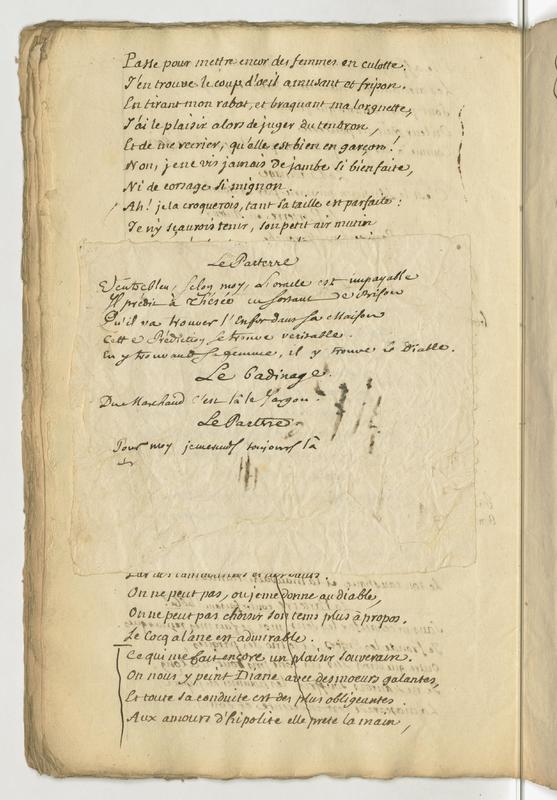 Passe pour mettre encor des femmes en culotte.
J'en trouve le coup d'oeil amusant et fripon.
En tirant mon rabat, et braquant ma lorgnette,
J'ai le plaisir alors de juger du tendron,
Et de me recrier, qu'elle est bien en garçon!
Non, je ne vis jamais de jambe si bien faite,
Ni de corsage si mignon.
Ah! je la croquerois, tant sa taille est parfaite:
Je n'y sçaurois tenir, son petit air mutin
Le Parterre
Ventrebleu, selon moy, L'oracle est impayable
Il predit à Thésée en sortant de Prison
Qu'il va trouver l'Enfer dans sa Maison
Cette Prediction se trouve veritable.
En y trouvant sa femme, il y trouve le Diable.
Le badinage.
D'un Marchand c'est là le Jargon.
Le Partere
Pour moy je
On ne peut pas, ou je me donne au diable,
On ne peut pas choisir son tems plus à propos.
Le Cocq a lane est admirable.
Ce qui me fait encore un plaisir souverain.
On nous y peint Diane avec des moeurs galantes,
Et toute sa conduite est des plus obligeantes.
Aux amours d'hipolite elle prete la main,